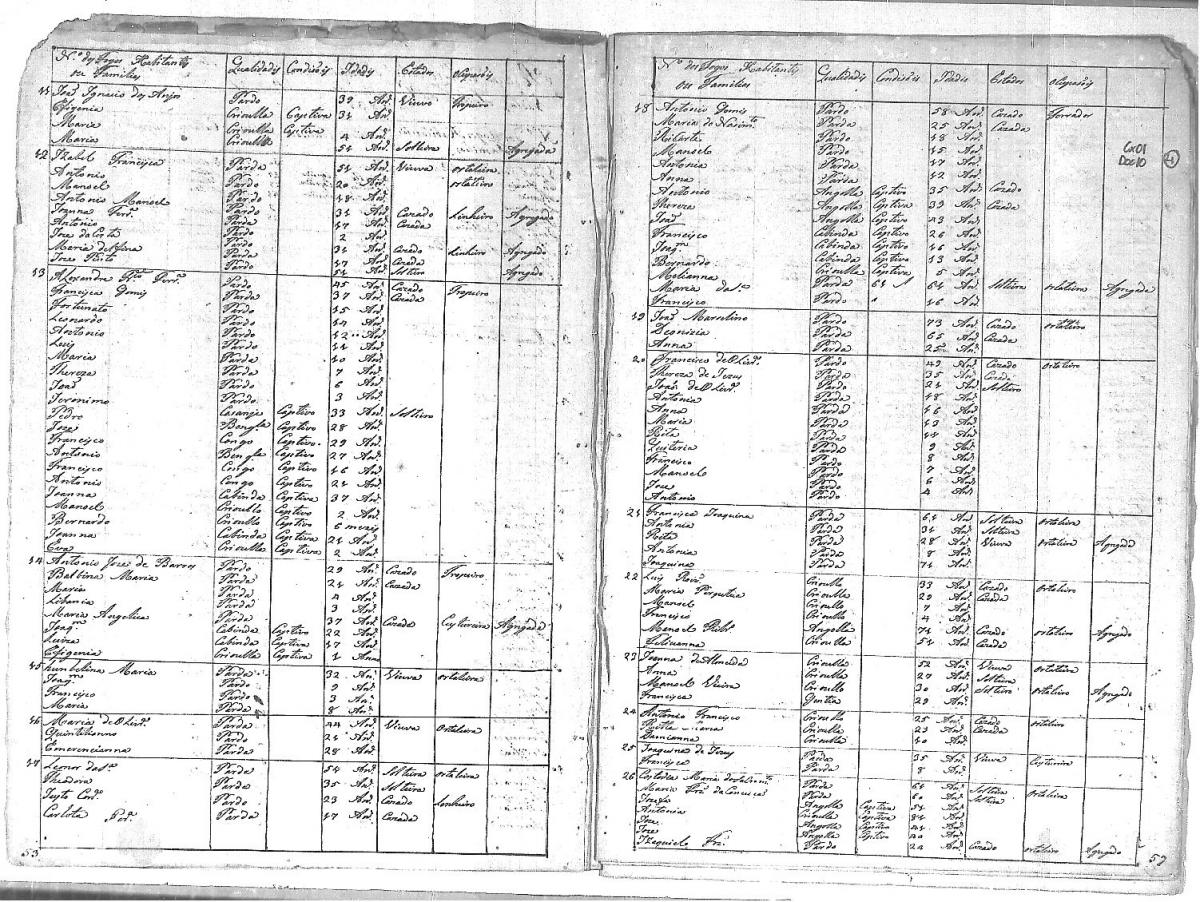 N.º dos Fogos Habitantes Qualidades Condisois Idades Estados Ocupasois
ou Familias
11 Joaõ Ignacio dos Anjos Pardo 39 An.s Viuvo Tropeiro
Efigenia Crioulla Captiva 31 An.s
Maria Crioulla Captiva 4 An.s
Maria Crioulla 51 An.s Solteira Agregada
12 Izabel Francisca Parda 51 An.s Viuva ortaleira
Antonio Pardo 20 An.s ortaleiro
Manoel Pardo 18 An.s
Antonio Manoel Pardo 31 An.s Cazado Linheiro Agregado
Joanna Parda 17 An.s Cazada
Antonio Pardo 2 An.s
Joze da Costa Pardo 31 An.s Cazado Linheiro Agregado
Maria Parda 17 An.s Cazada
Joze Pardo 51 An.s Solteiro Agregado
13 Alexandre Pardo 45 An.s Cazado Tropeiro
Francisca Gomis Parda 37 An.s Cazada
Fortunato Pardo 15 An.s
Leonardo Pardo 14 An.s
Antonio Pardo 12 An.s
Luis Pardo 11 An.s
Maria Parda 10 An.s
Thereza Parda 7 An.s
Joaõ Pardo 6 An.s
Jeronimo Pardo 3 An.s
Pedro Casanje Captivo 33 An.s Solteiro
Joze Bengla Captivo 28 An.s
Francisco Congo Captivo 29 An.s
Antonio Bengla Captivo 27 An.s
Francisco Congo Captivo 16 An.s
Antonio Congo Captivo 21 An.s
Joanna Cabinda Captiva 37 An.s
Manoel Crioullo Captivo 2 An.s
Bernardo Crioullo Captivo 6 mezis
Joanna Cabinda Captiva 21 An.s
Eva Crioulla Captiva 2 An.s
14 Antonio Joze de Barros Pardo 29 An.s Cazado Tropeiro
Balbina Maria Parda 21 An.s Cazada
Maria Parda 4 An.s
Libania Parda 3 An.s
Maria Angelica Parda 37 An.s Cazada Custureira Agregada
Joaq.m Cabinda Captivo 22 An.s
Luiza Cabinda Captiva 17 An.s
Efigenia Crioulla Captiva 1 Anno
15 Humbelina Maria Parda 32 An.s Viuva ortaleira
Joaq.m Pardo 9 An.s
Francisco Pardo 3 An.s
Maria Parda 8 An.s
16 Maria de Oliv.ra Parda 44 An.s Viuva Ortaleira
Quintilianno Pardo 21 An.s
Emerencianna Parda 28 An.s
17 Leonor da S.a Parda 54 An.s Solteira ortaleira
Theadora Parda 35 An.s Solteira
Justo Cord.o Pardo 23 An.s Cazado Linheiro
Carlota Parda 17 An.s Cazada
53
N.º dos Fogos Habitantes Qualidades Condisois Idades Estados Ocupasois
ou Familias
18 Antonio Gomis Pardo 58 An.s Cazado Ferrador
Maria do Nasim.to Parda 25 An.s Cazada
Ricarte Pardo 18 An.s
Manoel Pardo 15 An.s
Antonia Parda 17 An.s
Anna Parda 12 An.s
Antonio Angolla Captivo 35 An.s Cazado
Thereza Angolla Captiva 39 An.s Cazada
Joaõ Angolla Captivo 43 An.s
Francisco Cabinda Captivo 26 An.s
Joaq.m Cabinda Captivo 16 An.s
Bernardo Cabinda Captivo 13 An.s
Melianna Crioulla Captiva 5 An.s
Maria da S.a Parda 61 An.s Solteira ortaleira Agregada
Francisco Pardo 16 An.s
Cx01
Doc10
4
19 Joaõ Marcelino Pardo 73 An.s Cazado ortaleiro
Deonizia Parda 65 An.s Cazada
Anna Parda 25 An.s
20 Francisco de Oliv.ra Pardo 49 An.s Cazado ortaleiro
Thereza de Jezus Parda 35 An.s Cazada
Joaõ de Oliv.ra Pardo 21 An.s Solteiro
Antonia Parda 18 An.s
Anna Parda 16 An.s
Maria Parda 13 An.s
Rita Parda 11 An.s
Quiteria Parda 9 An.s
Francisco Pardo 8 An.s
Manoel Pardo 7 An.s
Joze Pardo 6 An.s
Antonio Pardo 4 An.s
21 Francisca Joaquina Parda 61 An.s Solteira ortaleira
Antonia Parda 31 An.s Solteira
Rita Parda 28 An.s Viuva ortaleira Agregada
Antonia Parda 8 An.s
Joaquina Parda 71 An.s
22 Luis Crioullo 33 An.s Cazado ortaleiro
Maria Perpetua Crioulla 29 An.s Cazada
Manoel Crioullo 7 An.s
Francisco Crioullo 4 An.s
Manoel Angolla 71 An.s Cazado ortaleiro Agregado
Julianna Crioulla 51 An.s Cazada
23 Joanna de Almeida Crioulla 52 An.s Viuva ortaleira
Anna Crioulla 27 An.s Solteira
Manoel Vieira Crioullo 30 An.s Solteiro ortaleiro Agregado
Francisca Gentia 29 An.s
24 Antonio Francisco Crioullo 25 An.s Cazado ortaleiro
Maria Crioulla 23 An.s Cazada
Damianna Crioulla 10 An.s
25 Joaquina de Jezus Parda 35 An.s Viuva Custureira
Francisca Parda 8 An.s
26 Custodia Maria Parda 61 An.s Solteira ortaleira
Maria da Conceica Parda 60 An.s Solteira
Jozefa Angolla Captiva 51 An.s
Antonia Crioulla Captiva 81 An.s
Joze Angolla Captivo 41 An.s
Joze Angolla Captivo 40 An.s
Izequiel Pardo 24 An.s Cazado ortaleiro Agregado
57